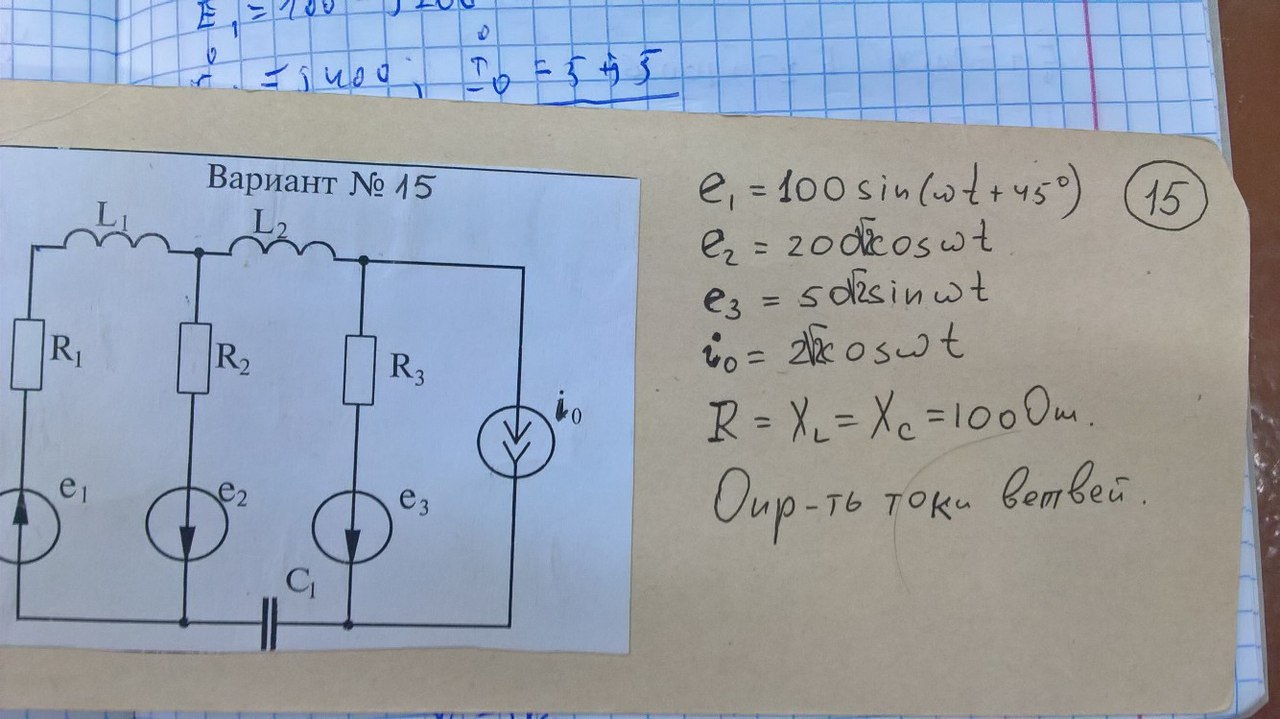 = j400; I₀ = 5+j5
Вариант № 15
L₁
L₂
R₁
R₂
R₃
i₀
e₁
e₂
e₃
C₁
e₁ = 100 sin(ωt + 45°)
15
e₂ = 200√2cosωt
e₃ = 50√2sinωt
i₀ = 2√2cosωt
R = X_L = X_C = 100 Ом.
Опр-ть токи ветвей.